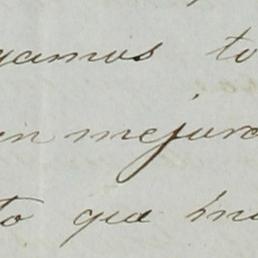 gamos to
en mejura
to que ha